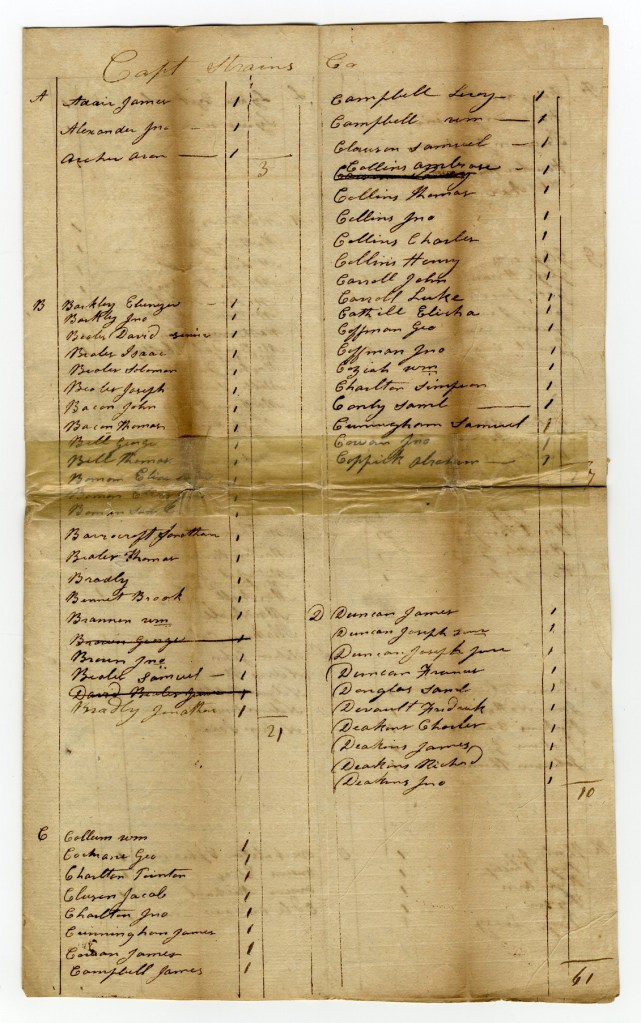 Capt Strains Co
A Adair James 1
Alexander Jno - 1
Archer Aron — 1
3
B Barkley Ebenezer - 1
Barkley Jno 1
Bealer David senior 1
Bealer Isaac 1
Bealer Solomon 1
Bealer Joseph 1
Bacon John 1
Bacon Thomas 1
Bell George 1
Bell Thomas 1
Boman 1
Boman 1
Boman Saml 1
Barrocroft Jonathan 1
Bealer Thomas 1
Bradly 1
Bennet Brook 1
Brannen wm 1
Brown George 1
Brown Jno 1
Bealer Samuel — 1
David Bealer 1
Bradly Jonathan 1
21
C Collum wm 1
Cochrane Geo 1
Charlton Pointon 1
Clusen Jacob 1
Charlton Jno 1
Cunningham James 1
Cowan James 1
Campbell James 1
Campbell Leroy 1
Campbell wm — 1
Clauson Samuel — 1
Collins Ambrose - 1
Collins Thomas 1
Collins Jno 1
Collins Charles 1
Collins Henry 1
Carroll John 1
Carroll Luke 1
Cathill Elisha 1
Coffman Geo 1
Coffman Jno 1
Coziah wm 1
Charlton Simpson 1
Conly Saml — 1
Cunningham Samuel 1
Cowan Jno 1
Coppick Abraham — 1
27
D Duncan James 1
Duncan Joseph senr 1
Duncan Joseph junr 1
Duncan Francis 1
Douglas Saml 1
Devault Fredrick 1
Deakins Charles 1
Deakins James 1
Deakins Richard 1
Deakins Jno 1
10
61